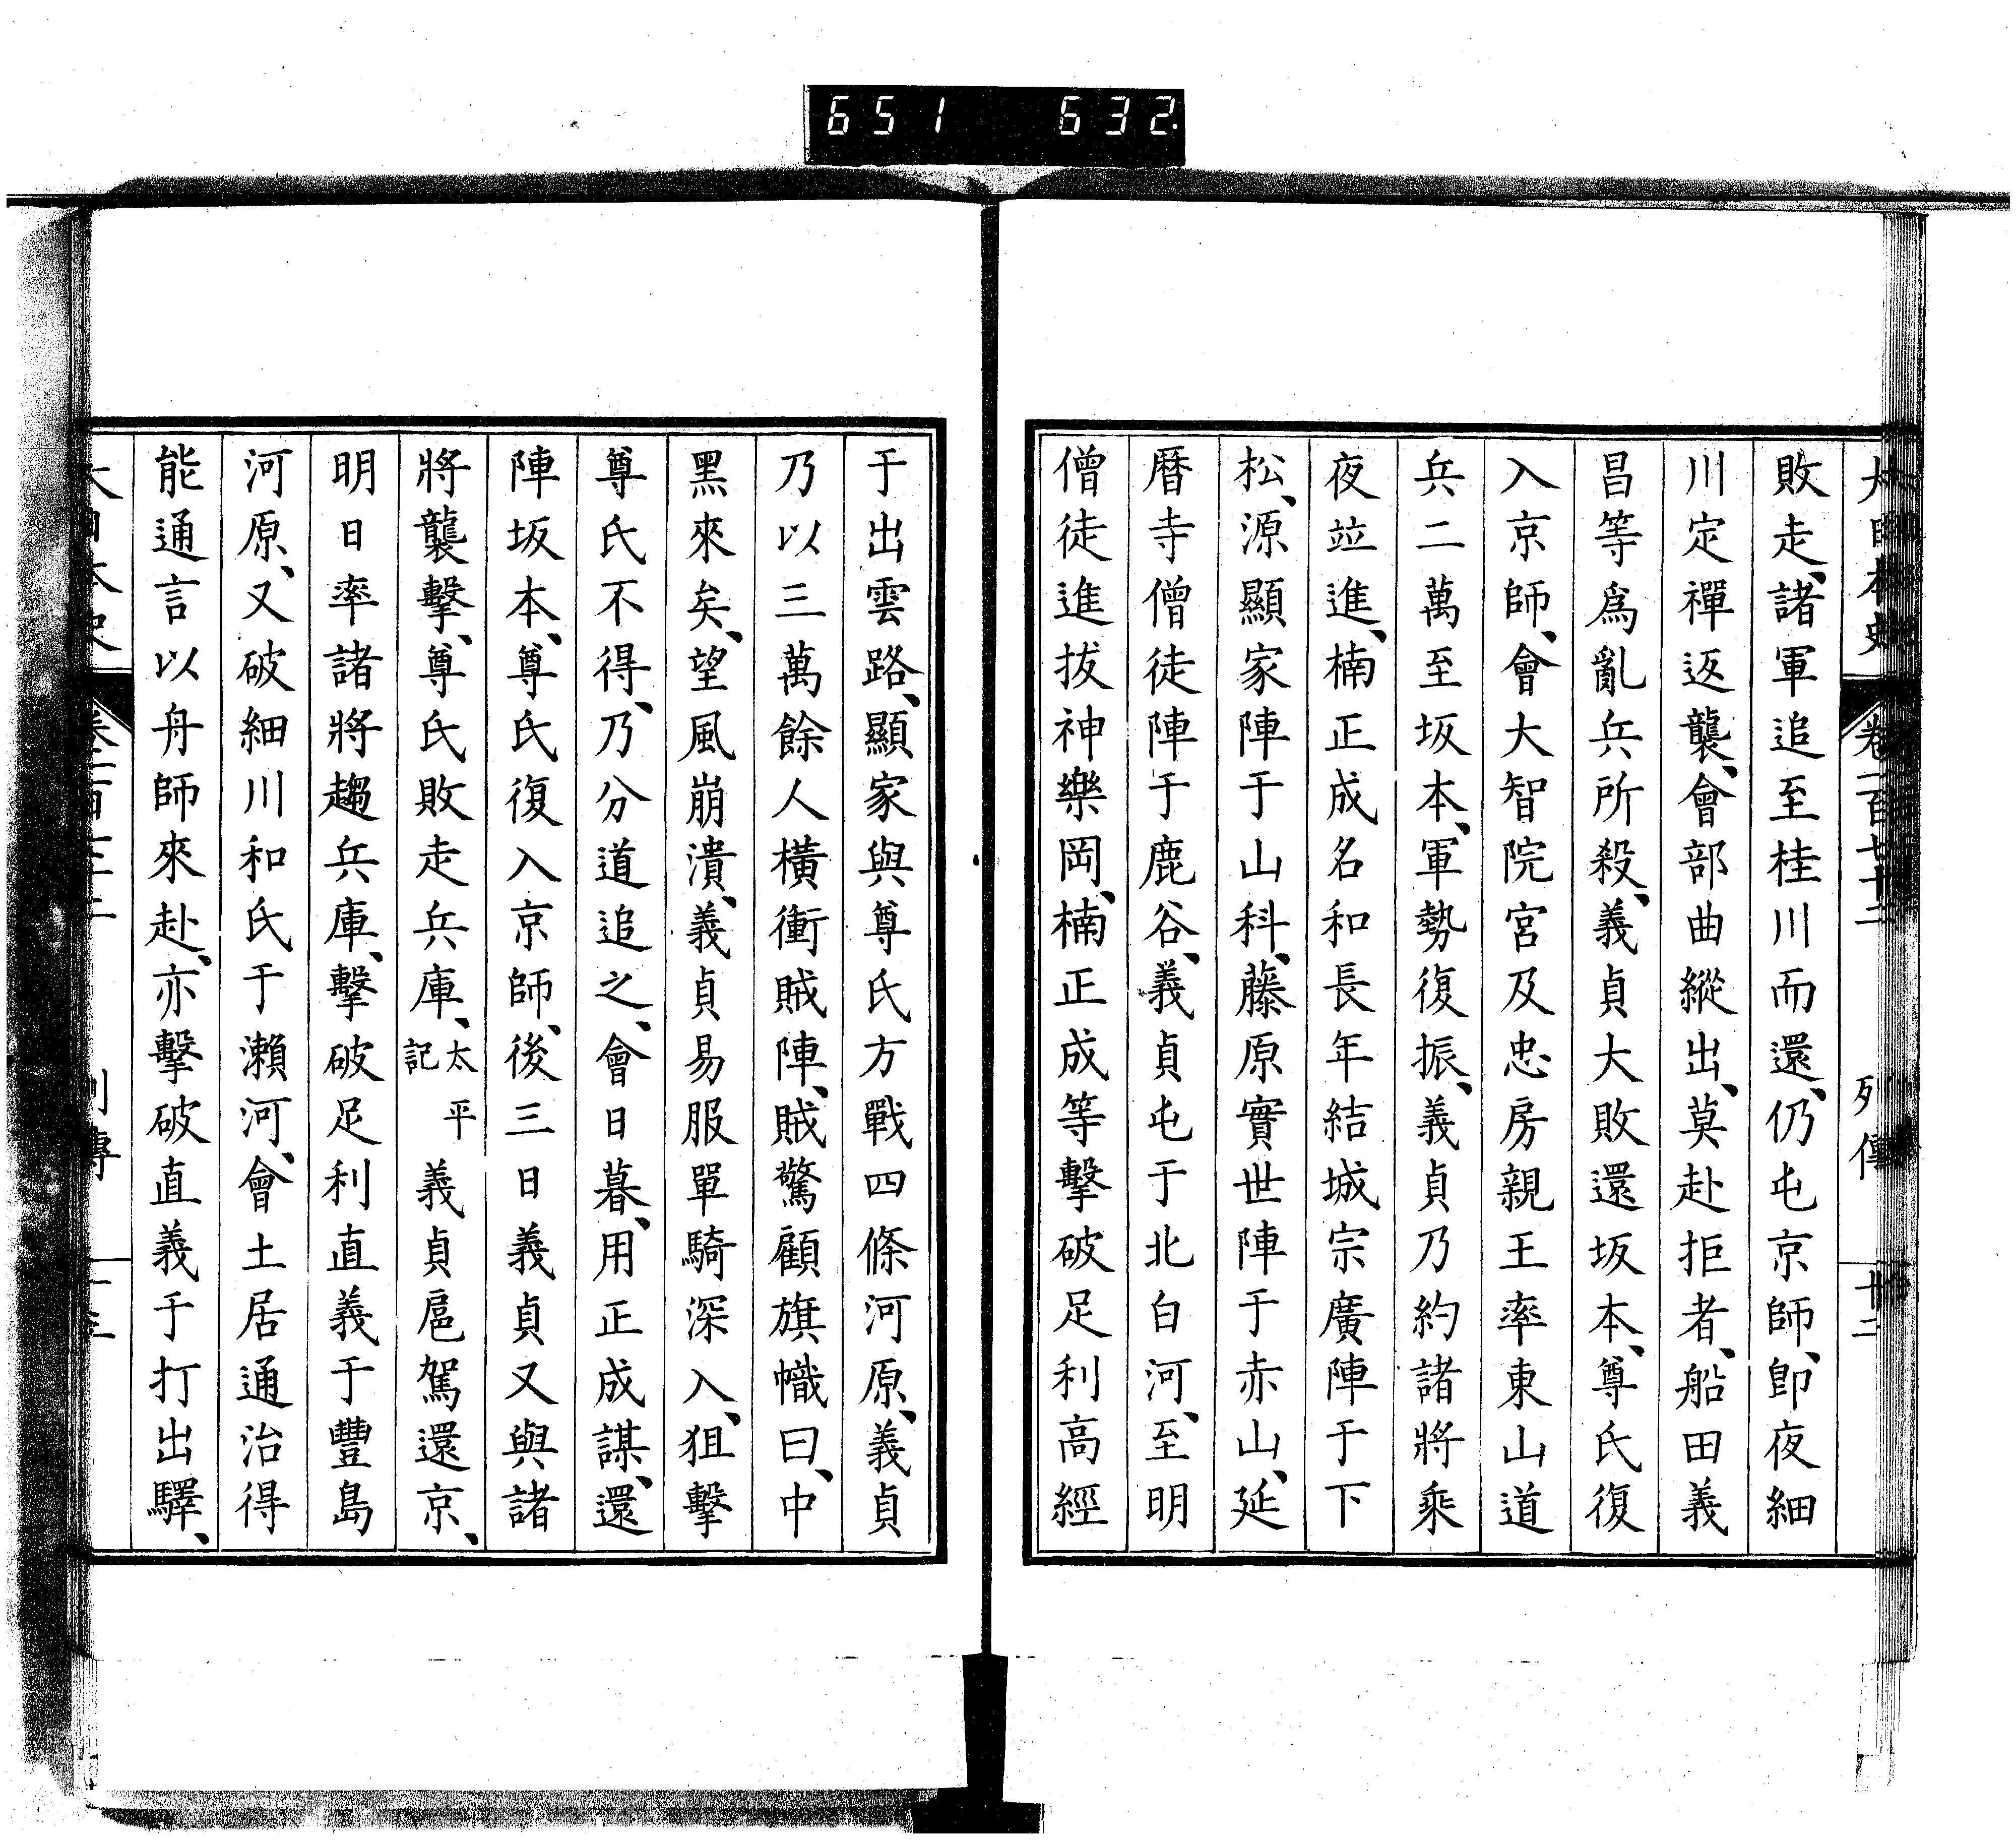 651 632.
大日本史 卷一百七十二 列傳 十二
敗走、諸軍追至桂川而還、仍屯京師、卽夜細
川定禪返襲、會部曲縱出、莫赴拒者、船田義
昌等爲亂兵所殺、義貞大敗還坂本、尊氏復
入京師、會大智院宮及忠房親王率東山道
兵二萬至坂本、軍勢復振、義貞乃約諸將乘
夜竝進、楠正成名和長年結城宗廣陣于下
松、源顯家陣于山科、藤原實世陣于赤山、延
曆寺僧徒陣于鹿谷、義貞屯于北白河、至明
僧徒進拔神樂岡、楠正成等擊破足利高經
于出雲路、顯家與尊氏方戰四條河原、義貞
乃以三萬餘人橫衝賊陣、賊驚顧旗幟曰、中
黑來矣、望風崩潰、義貞易服單騎深入、狙擊
尊氏不得、乃分道追之、會日暮、用正成謀、還
陣坂本、尊氏復入京師、後三日義貞又與諸
將襲擊、尊氏敗走兵庫、太平記義貞扈駕還京、
明日率諸將趨兵庫、擊破足利直義于豐島
河原、又破細川和氏于瀨河、會土居通治得
能通言以舟師來赴、亦擊破直義于打出驛、
大日本史 列傳